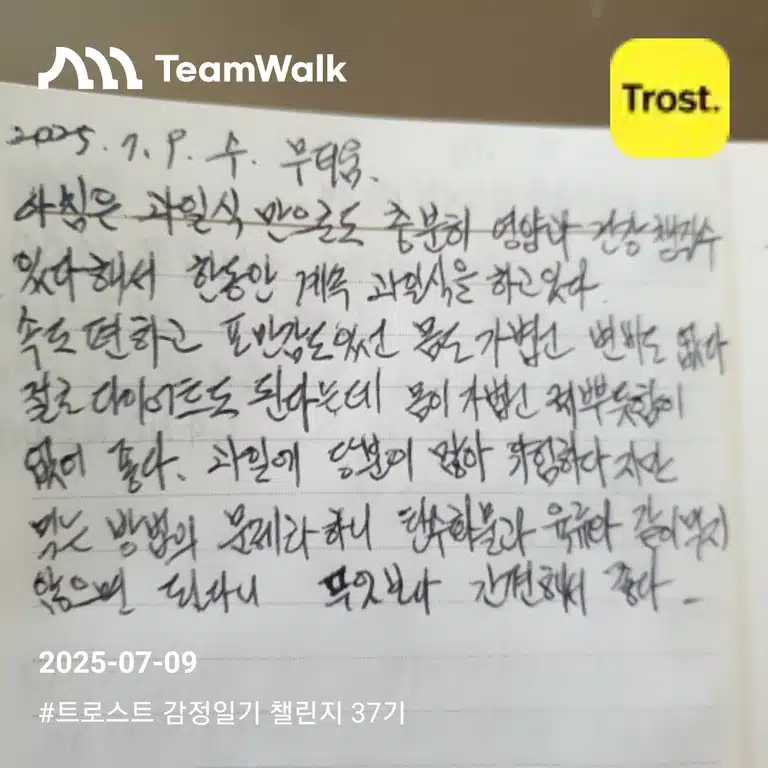 TeamWalk
Trost.
2025. 7. 9. 수. 무더움.
아침은 과일식 만으로도 충분히 영양과 건강 챙길수
있다 해서 한동안 계속 과일식을 하고 있다.
속도 편하고 포만감도 있고 몸도 가볍고 변비도 없다
절로 다이어트도 된다는데 몸이 가볍고 찌뿌듯함이
없어 좋다. 과일에 당분이 많아 위험하다 지만
먹는 방법의 문제라 하니 탄수화물과 육류와 같이 먹지
않으면 된다니 무엇보다 간편해서 좋다
2025-07-09
#트로스트 감정일기 챌린지 37기